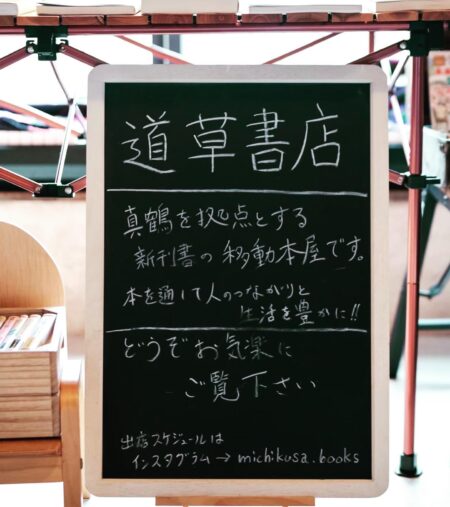 道草書店
真鶴を拠点とする
新刊書の移動本屋です。
本を通して人のつながりと
生活を豊かに!!
どうぞお気楽に
ご覧下さい
出店スケジュールは
インスタグラム→michikusa.books